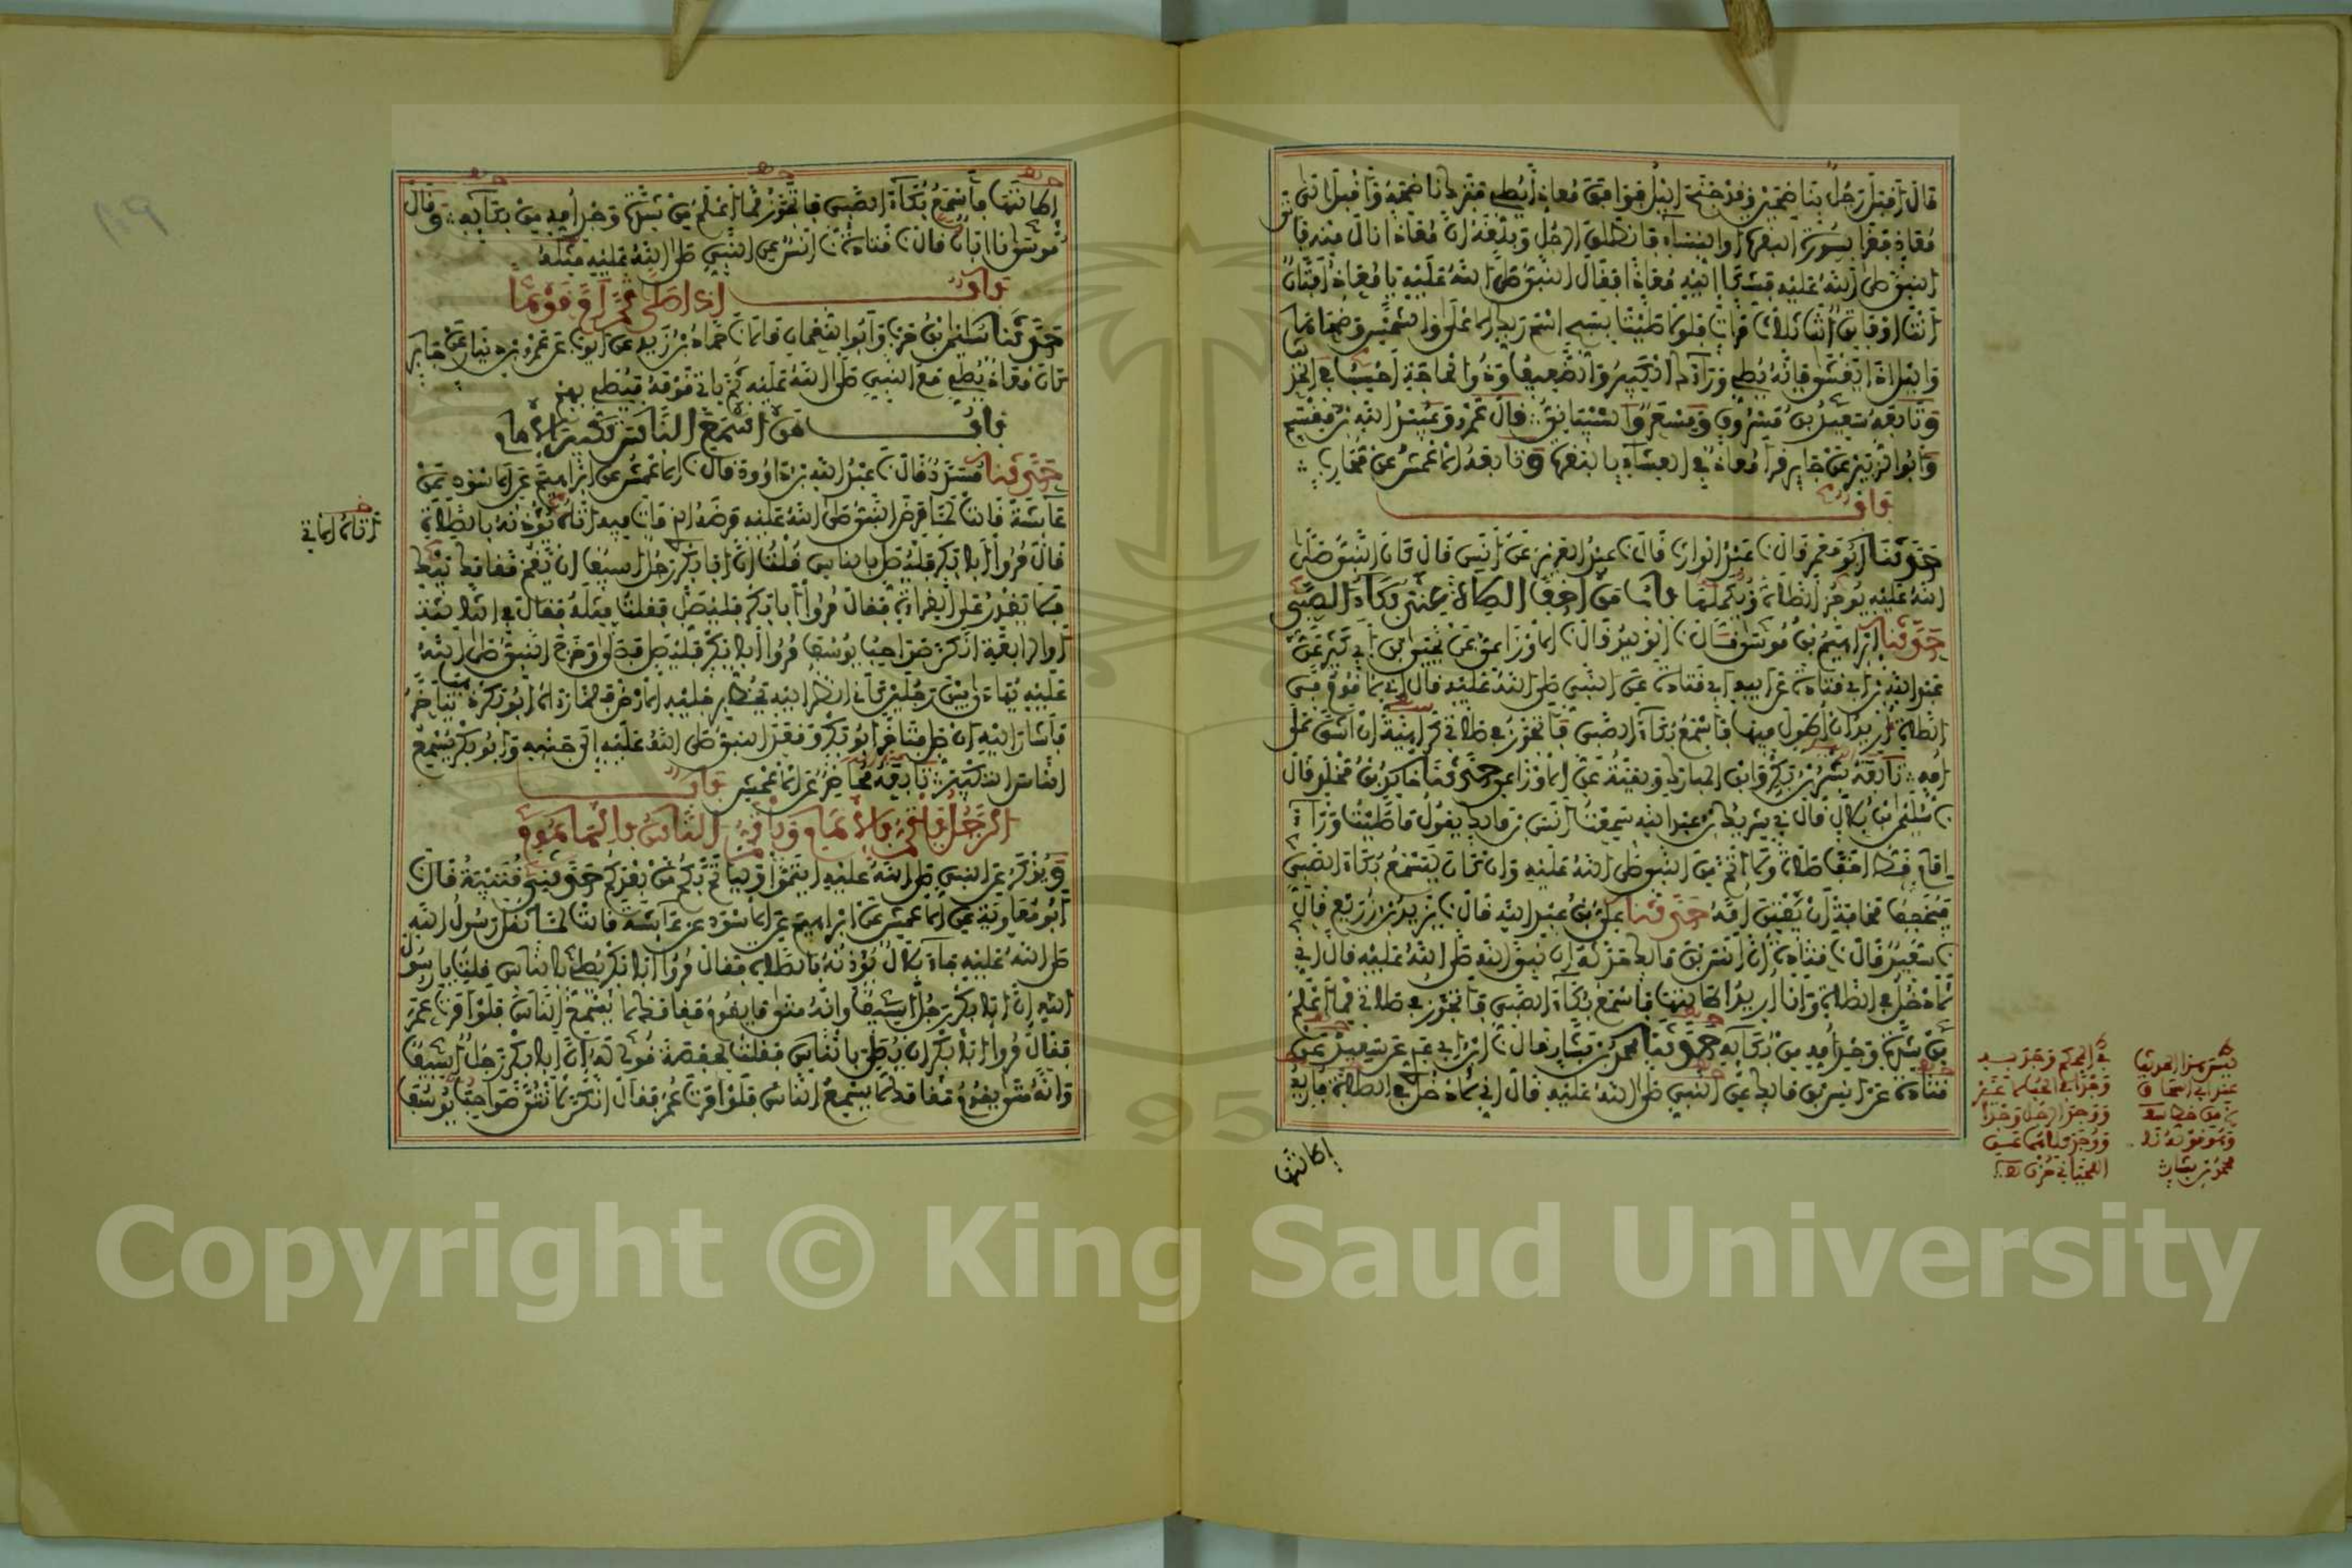 قال أقبل رجل بناضحين وقد جنح الليل فوافق معاذا يصلي فترك ناضحه وأقبل إلى
معاذ فقرأ بسورة البقرة أو النساء فانطلق الرجل وبلغه أن معاذا نال منه فأتى
النبي صلى الله عليه فشكا إليه معاذا فقال النبي صلى الله عليه يا معاذ أفتان
أنت أو فاتن أنت ثلاث مرات فلولا صليت بسبح اسم ربك الأعلى والشمس وضحاها
والليل إذا يغشى فإنه يصلي وراءك الكبير والضعيف وذو الحاجة أحسب في الحديث
وتابعه سعيد بن مسروق ومسعر والشيباني قال عمرو وعبيد الله بن مقسم
وأبو الزبير عن جابر قرأ معاذ في العشاء بالبقرة وتابعه الأعمش عن محارب
باب
حدثنا أبو معمر قال نا عبد الوارث قال نا عبد العزيز عن أنس قال كان النبي صلى
الله عليه يوجز الصلاة ويكملها باب من أخف الصلاة عند بكاء الصبي
حدثنا إبراهيم بن موسى قال نا الوليد قال نا الأوزاعي عن يحيى بن أبي كثير عن
عبد الله بن أبي قتادة عن أبيه أبي قتادة عن النبي صلى الله عليه قال إني لأقوم في
الصلاة أريد أن أطول فيها فأسمع بكاء الصبي فأتجوز في صلاتي كراهية أن أشق على
أمه تابعه بشر بن بكر وابن المبارك وبقية عن الأوزاعي حدثنا خالد بن مخلد قال
نا سليمان بن بلال قال ني شريك بن عبد الله سمعت أنس بن مالك يقول ما صليت وراء
إمام قط أخف صلاة ولا أتم من النبي صلى الله عليه وإن كان ليسمع بكاء الصبي
فيخفف مخافة أن تفتن أمه حدثنا علي بن عبد الله قال نا يزيد بن زريع قال
نا سعيد قال نا قتادة أن أنس بن مالك حدثه أن نبي الله صلى الله عليه قال إني
لأدخل في الصلاة وأنا أريد إطالتها فأسمع بكاء الصبي فأتجوز في صلاتي مما أعلم
من شدة وجد أمه من بكائه حدثنا محمد بن بشار قال نا ابن أبي عدي عن سعيد عن
قتادة عن أنس بن مالك عن النبي صلى الله عليه قال إني لأدخل في الصلاة فأريد
إطالتها
إطالتها فأسمع بكاء الصبي فأتجوز مما أعلم من شدة وجد أمه من بكائه وقال
موسى نا أبان قال نا قتادة نا أنس عن النبي صلى الله عليه مثله
باب إذا صلى ثم أم قوما
حدثنا سليمان بن حرب وأبو النعمان قالا نا حماد بن زيد عن أيوب عن عمرو بن دينار عن جابر
كان معاذ يصلي مع النبي صلى الله عليه ثم يأتي قومه فيصلي بهم
باب من أسمع الناس تكبير الإمام
حدثنا مسدد قال نا عبد الله بن داوود قال نا الأعمش عن إبراهيم عن الأسود عن
عائشة قالت لما مرض النبي صلى الله عليه مرضه الذي مات فيه أتاه يؤذنه بالصلاة
قال مروا أبا بكر فليصل بالناس قلت إن أبا بكر رجل أسيف إن يقم مقامك يبك
فلا يقدر على القراءة فقال مروا أبا بكر فليصل فقلت مثله فقال في الثالثة
أو الرابعة إنكن صواحب يوسف مروا أبا بكر فليصل فصلى وخرج النبي صلى الله
عليه يهادى بين رجلين كأني أنظر إليه يخط برجليه الأرض فلما رآه أبو بكر ذهب يتأخر
فأشار إليه أن صل فتأخر أبو بكر وقعد النبي صلى الله عليه إلى جنبه وأبو بكر يسمع
الناس التكبير تابعه محاضر عن الأعمش باب
الرجل يأتم بالإمام ويأتم الناس بالمأموم
ويذكر عن النبي صلى الله عليه ائتموا بي وليأتم بكم من بعدكم حدثني قتيبة قال نا
أبو معاوية عن الأعمش عن إبراهيم عن الأسود عن عائشة قالت لما ثقل رسول الله
صلى الله عليه جاء بلال يؤذنه بالصلاة فقال مروا أبا بكر يصلي بالناس فقلت يا رسول
الله إن أبا بكر رجل أسيف وإنه متى ما يقوم مقامك لا يسمع الناس فلو أمرت عمر
فقال مروا أبا بكر أن يصلي بالناس فقلت لحفصة قولي له إن أبا بكر رجل أسيف
وإنه متى يقوم مقامك لا يسمع الناس فلو أمرت عمر فقال إنكن لأنتن صواحب يوسف
Copyright © King Saud University